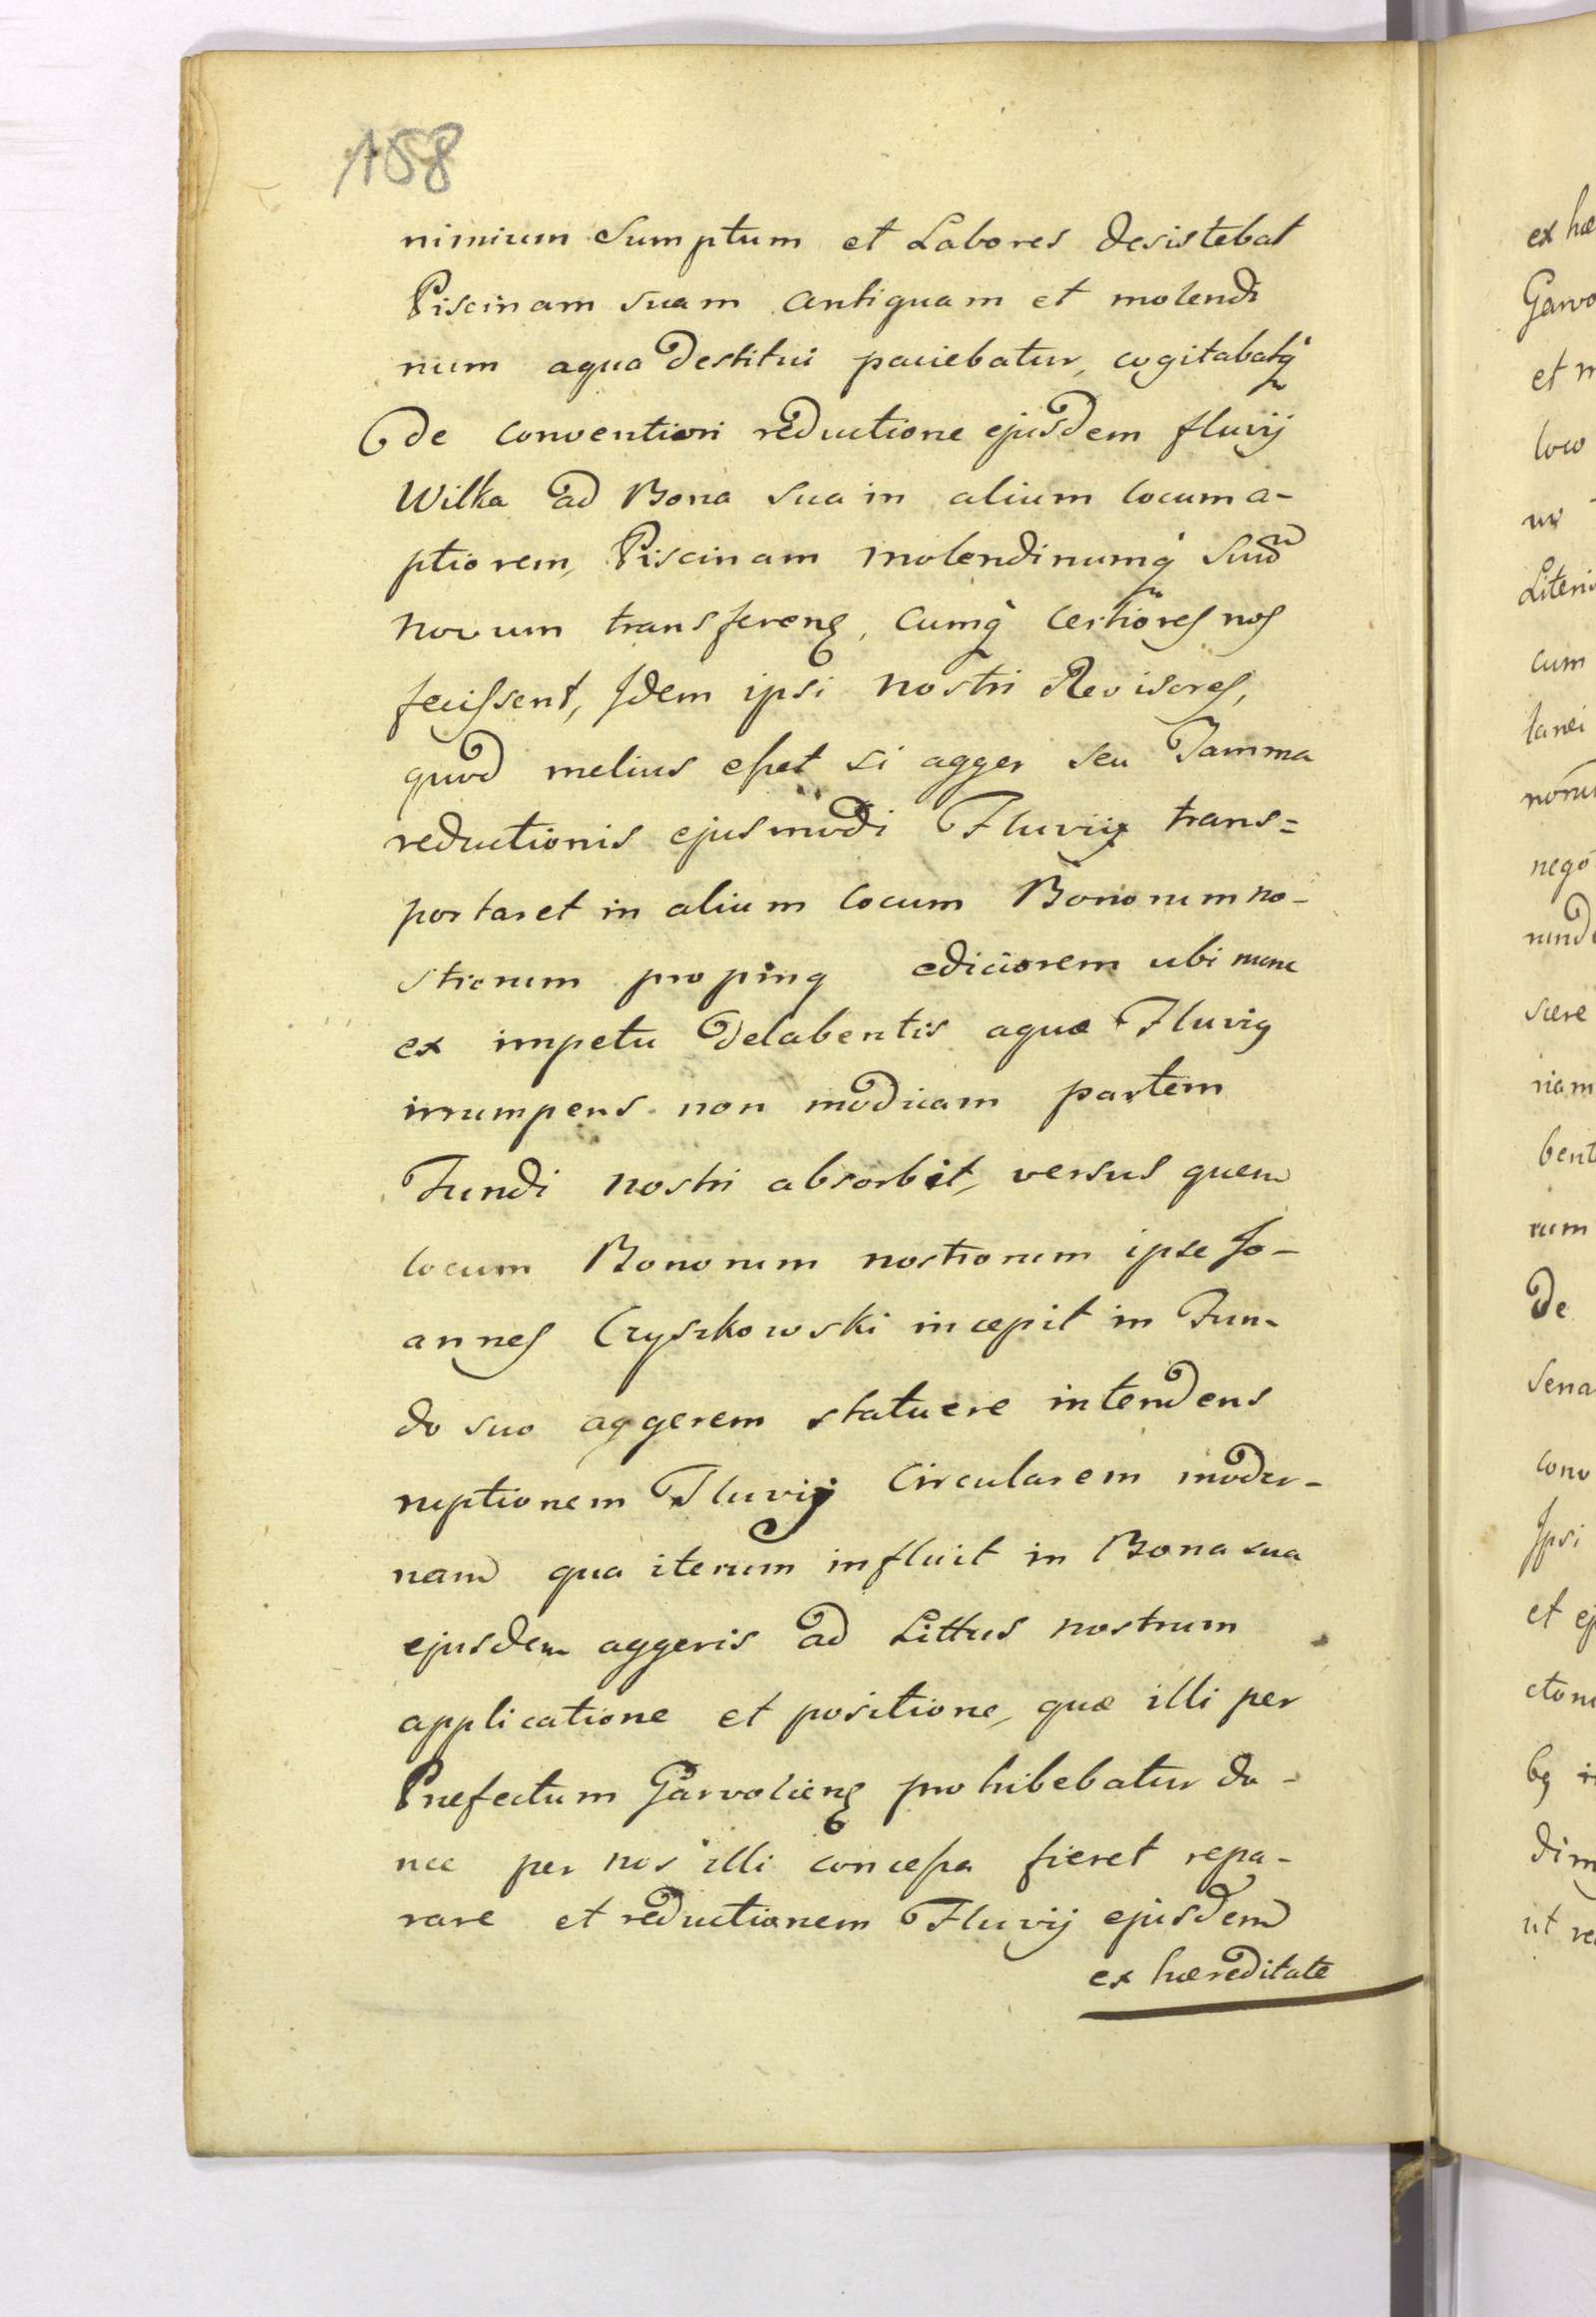 158
nimium Sumptum et Labores desistebat
Piscinam suam antiquam et molendi
num aqua destitui paciebatur, cogitabatq̃
de conventiori reductione ejusdem fluvij
Wilka ad Bona sua in alium locum a-
ptiorem, Piscinam molendinumq̃ suũ
novum transferenẽ, cumq̃ certiores nos
fecissent, Jdem ipsi nostri Revisores,
quod melius esset si agger seu Tamma
reductionis ejusmodi Fluvij trans=
portaret in alium locum Bonorum no-
strorum propinq ediciorem ubi nunc
ex impetu delabentis aquæ Fluvig
irrumpens non modicam partem
Fundi nostri absorbit, versus quem
locum Bonorum nostrorum ipse Jo-
annes Cryszkowski incepit in Fun-
do suo aggerem statuere intendens
ruptionem Fluvij Circularem moder-
nam qua iterum influit in Bona sua
ejusdem aggeris ad Littus nostrum
applicatione et positione, quæ illi per
Præfectum Garvolienẽ prohibebatur do-
nec per nos illi concessa fieret repa-
rare et reductionem Fluvij ejusdem
ex hæreditate